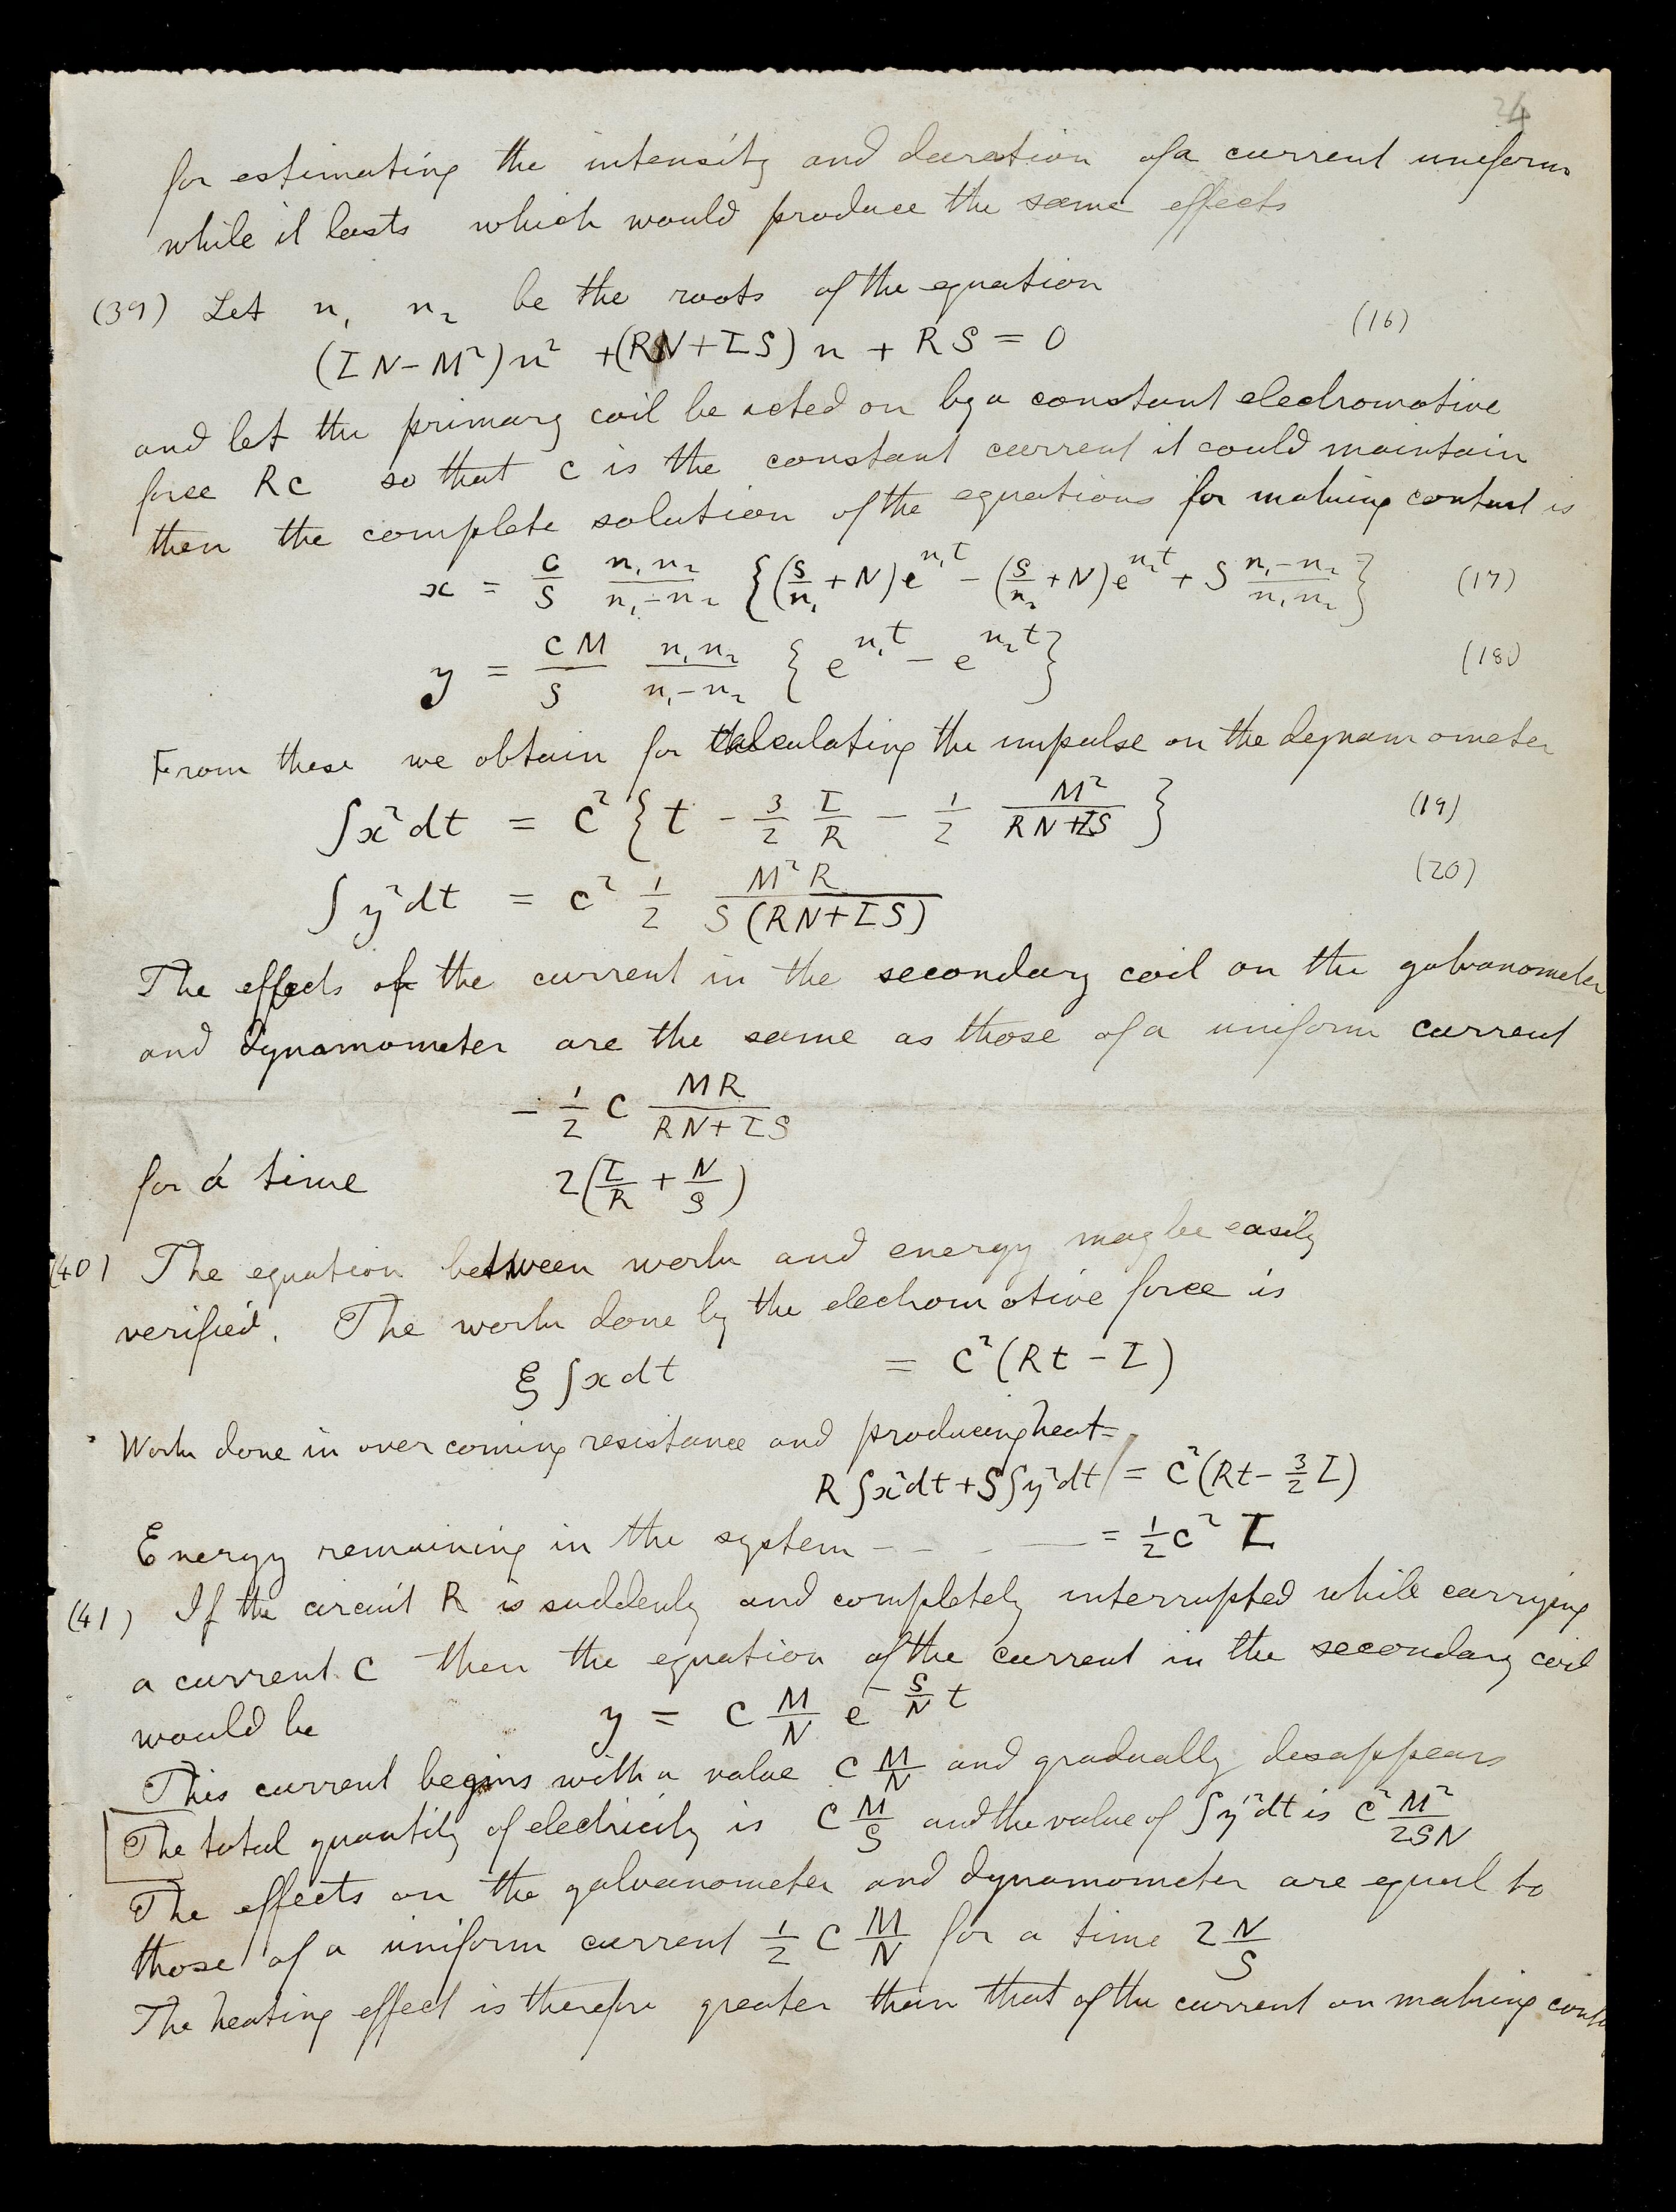 24
for estimating the intensity and duration of a current uniform
while it lasts which would produce the same effects
(39) Let n₁ n₂ be the roots of the equation
(IN − M²)n² + (RN + IS)n + RS = 0 (16)
and let the primary coil be acted on by a constant electromotive
force Rc so that c is the constant current it could maintain
then the complete solution of the equations for making contact is
x = c/S n₁n₂/(n₁−n₂) {(S/n₁ + N)e^{n₁t} − (S/n₂ + N)e^{n₂t} + S (n₁−n₂)/(n₁n₂)} (17)
y = cM/S n₁n₂/(n₁−n₂) {e^{n₁t} − e^{n₂t}} (18)
From these we obtain for calculating the impulse on the dynamometer
∫x²dt = c² {t − 3/2 I/R − 1/2 M²/(RN+IS)} (19)
∫y²dt = c² 1/2 M²R/(S(RN+IS)) (20)
The effects of the current in the secondary coil on the galvanometer
and dynamometer are the same as those of a uniform current
− 1/2 c MR/(RN+IS)
for a time 2(I/R + N/S)
(40) The equation between work and energy may be easily
verified. The work done by the electromotive force is
ξ∫xdt = c²(Rt − I)
Work done in overcoming resistance and producing heat =
R∫x²dt + S∫y²dt = c²(Rt − 3/2 I)
Energy remaining in the system − − − — = 1/2 c² I
(41) If the circuit R is suddenly and completely interrupted while carrying
a current c then the equation of the current in the secondary coil
would be y = c M/N e^{−S/N t}
This current begins with a value c M/N and gradually disappears
The total quantity of electricity is c M/S and the value of ∫y²dt is c² M²/2SN
The effects on the galvanometer and dynamometer are equal to
those of a uniform current 1/2 c M/N for a time 2 N/S
The heating effect is therefore greater than that of the current on making